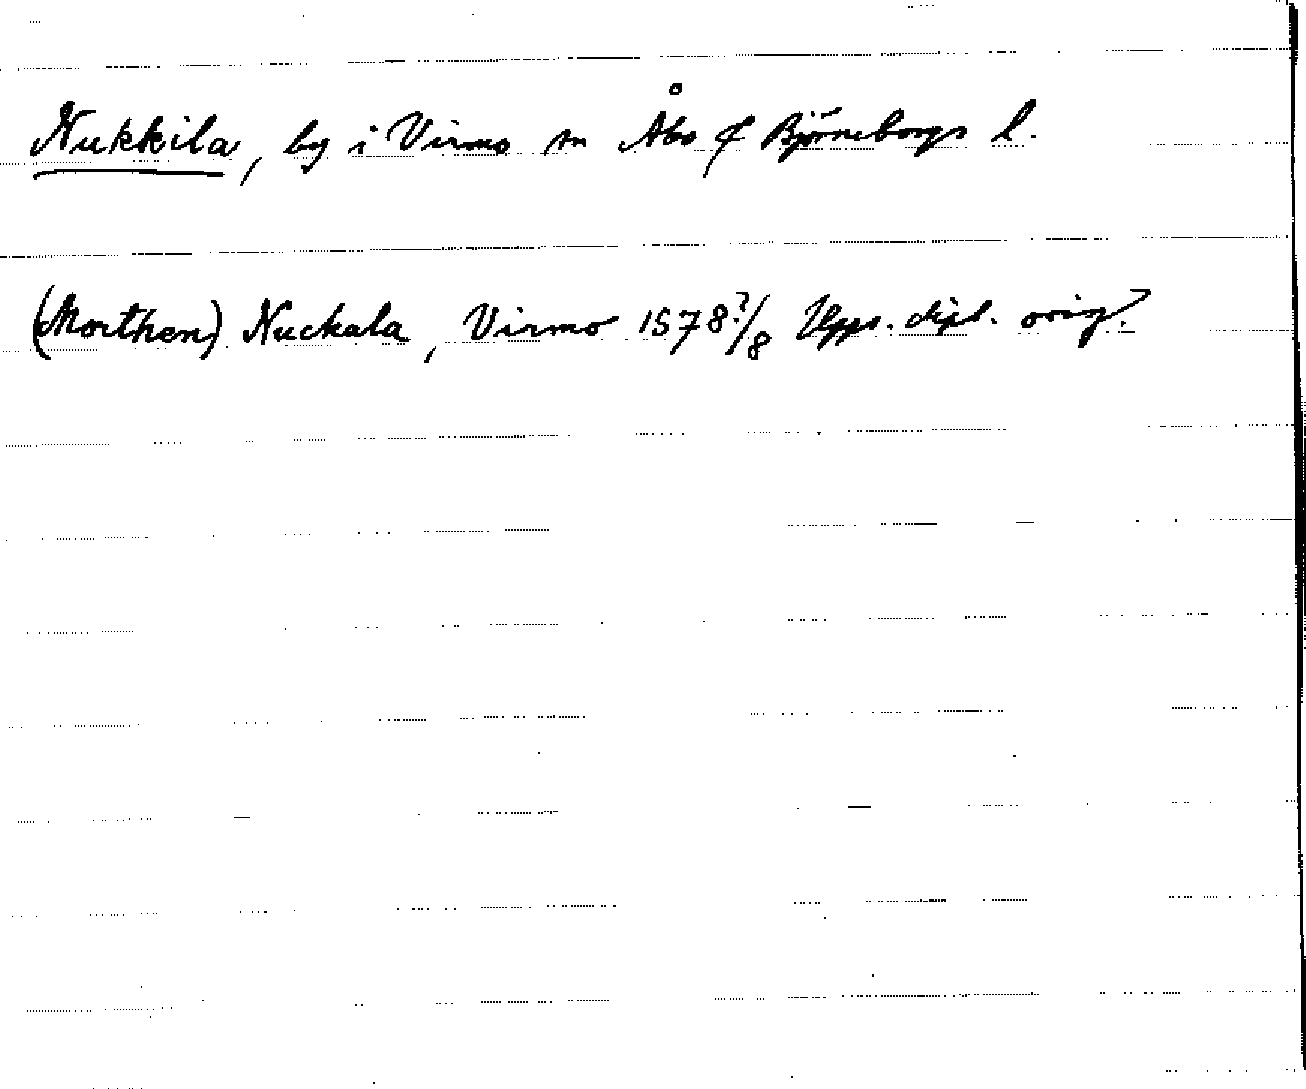 Nukkila, by i Virmo sn Åbo & Björneborgs l.
(Morthen) Nuckala, Virmo 1578 7/8 Upps. dipl. orig.